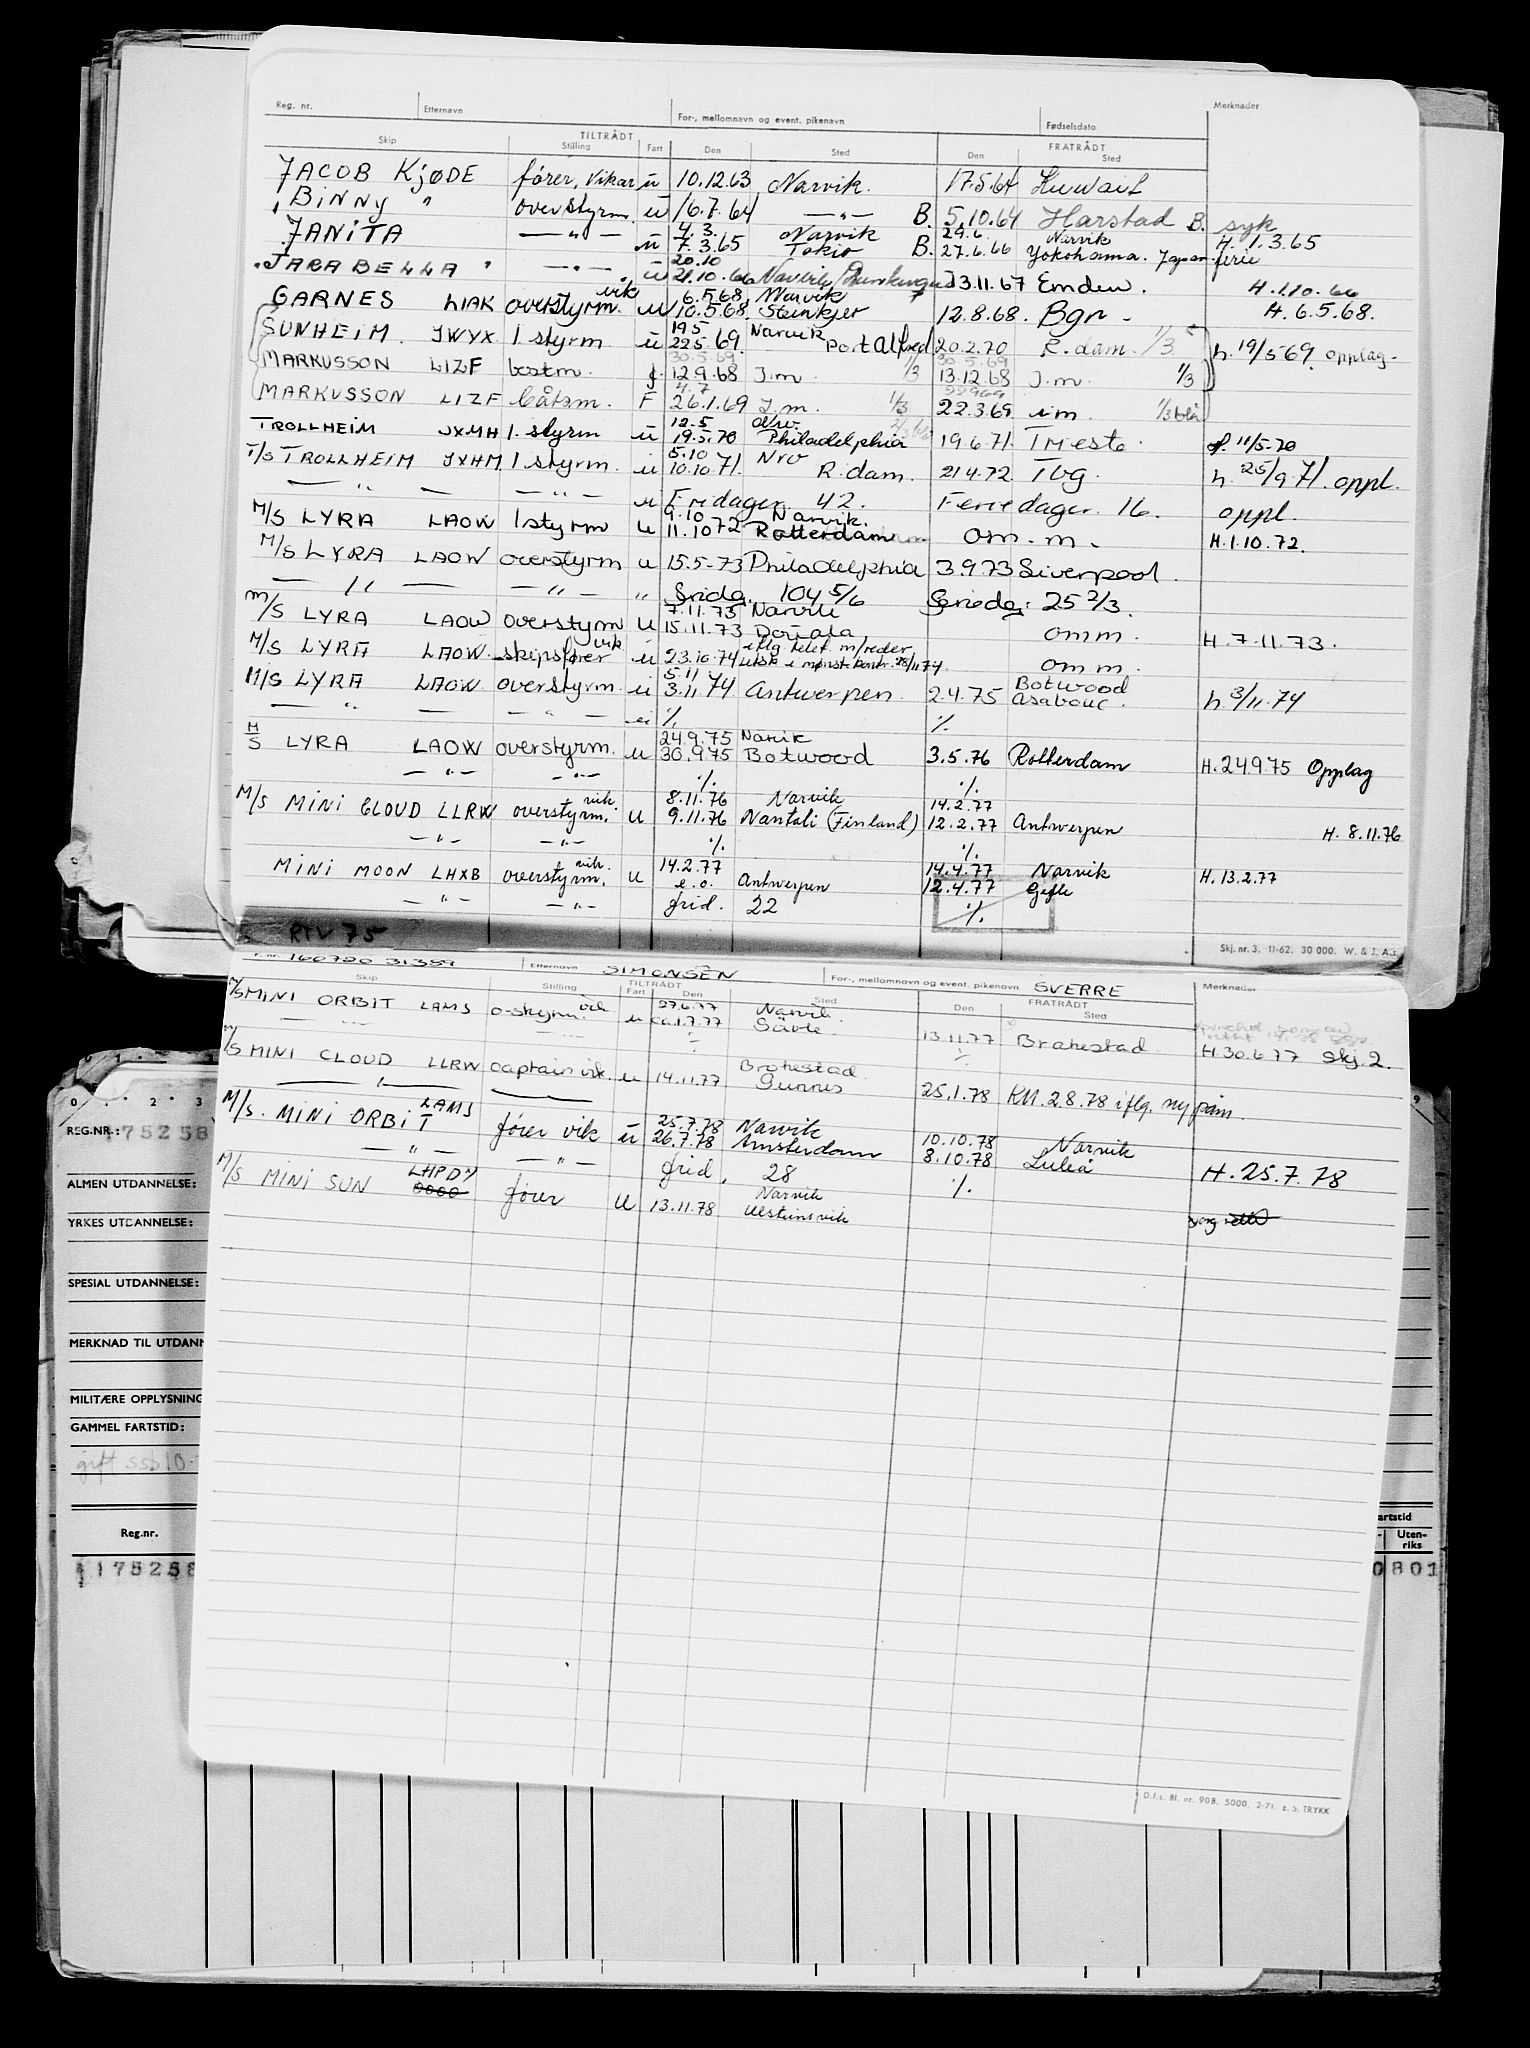 Reg. nr. Etternavn For-, mellomnavn og event. pikenavn Fødselsdato Merknader
TILTRÅDT FRATRÅDT
Skip Stilling Fart Den Sted Den Sted
JACOB KJØDE fører, vikar u 10.12.63 Narvik. 17.5.64 Kuwait
BINNY " overstyrm u 16.7.64 — " — B. 5.10.64 Harstad B. syk
4.3. Narvik 29.6 Narvik
JANITA — " — u 7.3.65 Tokio B. 27.6.66 Yokohama. Japan. ferie H. 1.3.65
20.10
JARABELLA " — " — u 21.10.66 13.11.67 Emden. H. 1.10.66
vik 6.5.68, Narvik
GARNES LIAK overstyrm. u 10.5.68. Steinkjer 12.8.68. Bgn - H. 6.5.68.
19.5 Narvik
SUNHEIM. JWYX 1. styrm u 22.5.69. Port Alfred 20.2.70 R.dam. 1/3 h. 19/5 69. opplag-
30.5.69 30.5.69
MARKUSSON LIZF bestm. f. 12.9.68 I.m. 1/3 13.12.68 I.m. 1/3
4.7 22969
MARKUSSON LIZF båtsm. F 26.1.69 I.m. 1/3 22.3.69 i.m 1/3 blå
12.5 Nrv.
TROLLHEIM JXMH 1. styrm u 19.5.70 Philadelphia 19.6.71. Trieste. 11/5-70
5.10 Nrv
T/S TROLLHEIM JXHM 1 styrm. u 10.10.71. R.dam. 21.4.72. Tbg. h. 25/9 71. oppl.
— " — — " — u Fridager. 42. Feriedager. 16. oppl.
9.10 Narvik.
M/S LYRA LAOW 1 styrm u 11.10 72 Rotterdam om. m. H.1.10.72.
M/S LYRA LAOW overstyrm u 15.5-73 Philadelphia 3.9.73 Liverpool.
— " — — " — " Fridg. 104 5/6 Feriedg. 25 2/3.
7.11.73 Narvik
M/S LYRA LAOW overstyrm u 15.11.73 omm. H. 7.11.73.
vik iflg. telef. m/reder
M/S LYRA LAOW. skipsfører u 23.10.74 28/11 74 om m.
5.11 Botwood
M/S LYRA LAOW. overstyrm. u 3.11 74 Antwerpen. 2.4.75 h. 3/11.74
— " — — " — u % %
24.9.75 Narvik
M/S LYRA LAOW overstyrm. u 30.9.75 Botwood 3.5.76 Rotterdam H. 24.9.75 Opplag
— " — — " — % %
vik. 8.11.76 Narvik 14.2.77
M/S MINI CLOUD LLRW overstyrm. u 9.11.76 Nantali (Finland) 12.2.77 Antwerpen H. 8.11.76
— " — — " — % %
vik. 14.2.77 14.4.77 Narvik
MINI MOON LHXB overstyrm. u e.o. Antwerpen 12.4.77 Gefle H. 13.2.77
— " — — " — frid. 22 %
RTV 75
Skj. nr. 3. 11-62. 30 000. W. & S. A.s
F. nr. 160720 31359 Etternavn SIMONSEN For-, mellomnavn og event. pikenavn SVERRE Merknader
TILTRÅDT FRATRÅDT
Skip Stilling Fart Den Sted Den Sted
vik 27.6.77 Narvik.
M/S MINI ORBIT LAMS o-styrm. u ca.1.7.77 Gävle. 13.11.77 Brahestad H. 30.6.77 Skj. 2.
— " — % %
Brahestad.
M/S MINI CLOUD LLRW captain vik. u 14.11.77 Gunnes 25.1.78 KM. 2.8.78 iflg. ny påm.
— " —
LAMS 25.7.78 Narvik 10.10.78 Narvik
M/S. MINI ORBIT fører vik u 26.7.78 Amsterdam 8.10.78 Luleå H. 25.7.78
— " — — " — frid, 28 %
LHPD Narvik
M/S MINI SUN 0000 fører u 13.11.78 Ulsteinsvik
D.f.s. Bl. nr. 90B. 5000. 2-71. E. S. TRYKK
0 . 1 . 2 . 3
REG.NR.: 175258
ALMEN UTDANNELSE:
YRKES UTDANNELSE:
SPESIAL UTDANNELSE:
MERKNAD TIL UTDANN
MILITÆRE OPPLYSNING
GAMMEL FARTSTID:
gift ssb 10-
Reg.nr. artstid
Uten-
riks
175258 0801